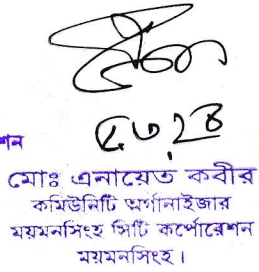 শন
মোঃ এনায়েত কবীর
কমিউনিটি অর্গানাইজার
ময়মনসিংহ সিটি কর্পোরেশন
ময়মনসিংহ।